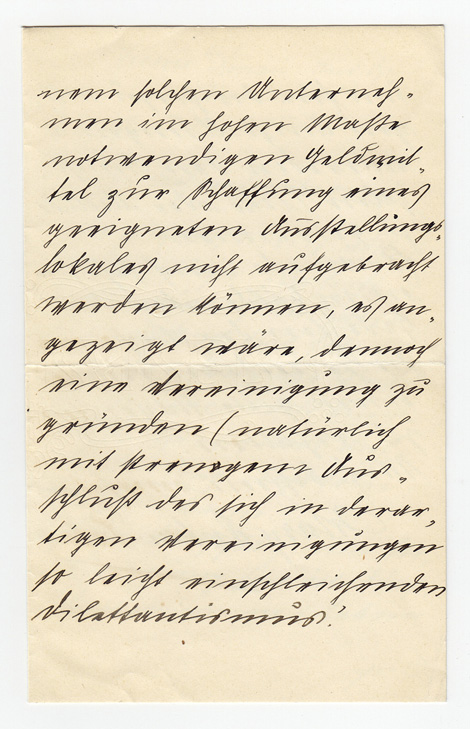 nem solchen Unterneh-
men im hohen Maße
notwendigen Geldmit-
tel zur Schaffung eines
geeigneten Ausstellungs-
lokales nicht aufgebracht
werden können, es an-
gezeigt wäre, dennoch
eine Vereinigung zu
gründen (natürlich
mit strengem Aus-
schluß des sich in derar-
tigen Vereinigungen
so leicht einschleichenden
Dilettantismus!